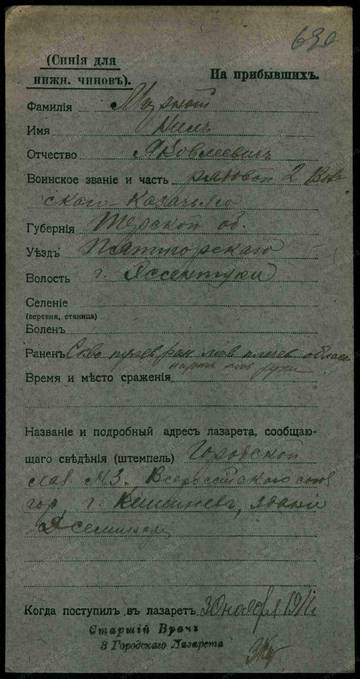 630
(Синія для
нижн. чиновъ).
На прибывшихъ.
Фамилія
Имя Нилъ
Отчество Яковлевичъ
Воинское званіе и часть рядовой 2
скаго Казачьяго
Губернія Терской об.
Уѣздъ Пятигорскаго
Волость г. Ессентуки
Селеніе
(деревня, станица)
Боленъ
Раненъ лев плечев
руки
Время и мѣсто сраженія
Названіе и подробный адресъ лазарета, сообщаю-
щаго свѣдѣнія (штемпель) Городской
лаз №3. Всероссійскаго союз
гор. г. Кишиневъ, зданіе
Когда поступилъ въ лазаретъ 30 ноября 191
Старшій Врачъ
3 Городского Лазарета